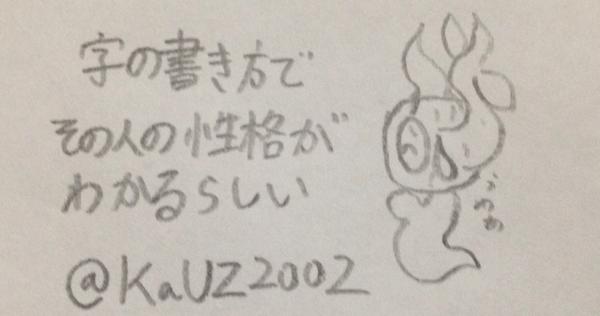 字の書き方で
その人の性格が
わかるらしい
@KaUZ2002